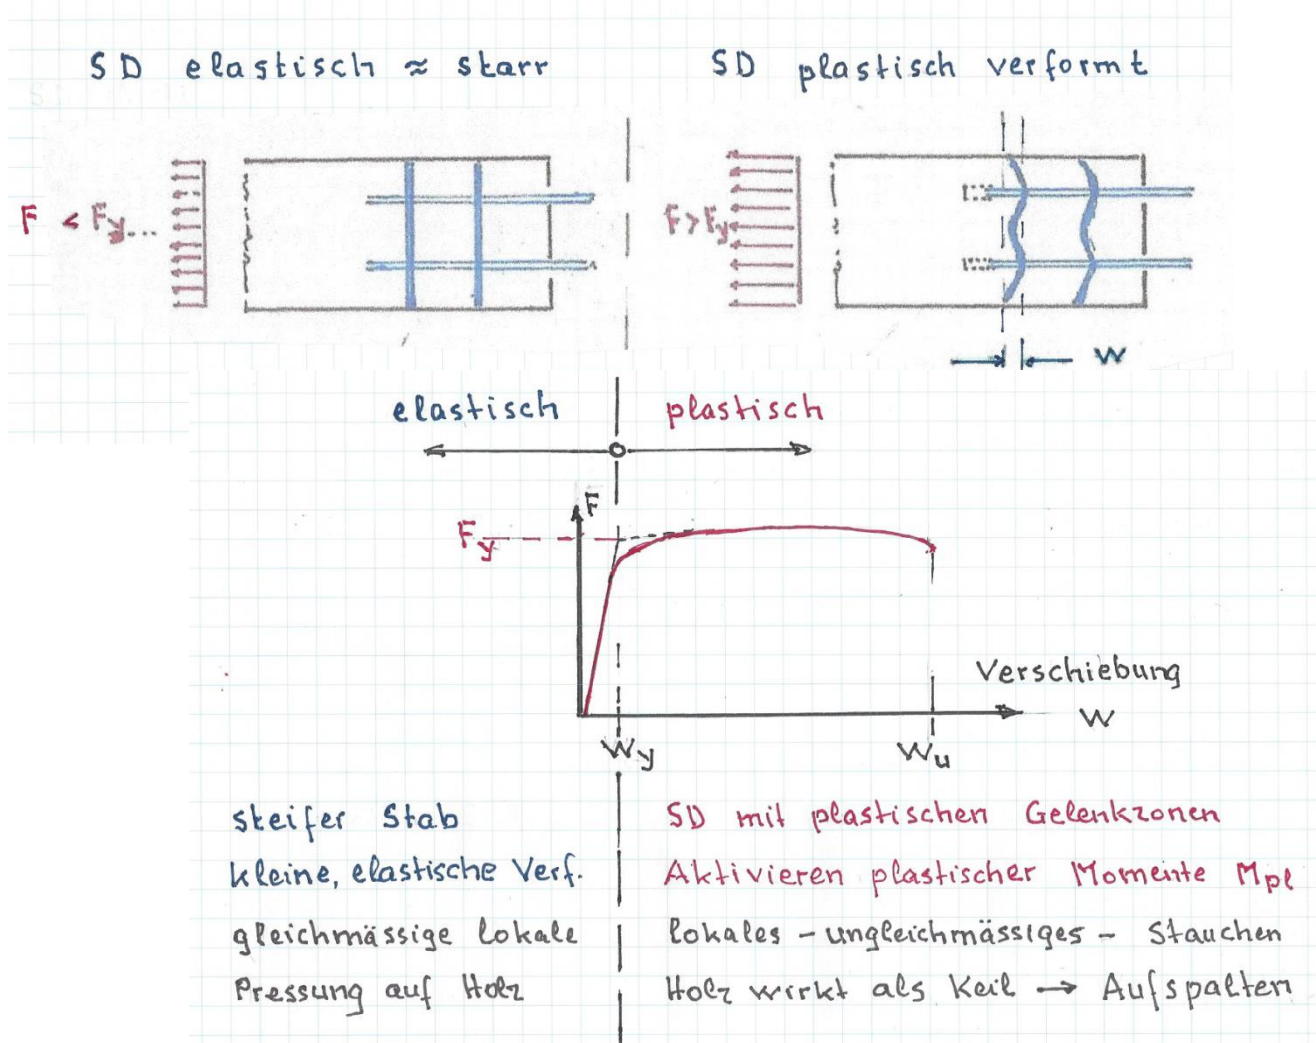 SD elastisch ≈ starr
SD plastisch verformt
F < Fy...
F > Fy
w
elastisch
plastisch
F
Fy
Verschiebung
w
wy
wu
steifer Stab
kleine, elastische Verf.
gleichmässige lokale
Pressung auf Holz
SD mit plastischen Gelenkzonen
Aktivieren plastischer Momente Mpl
lokales - ungleichmässiges - Stauchen
Holz wirkt als Keil → Aufspalten